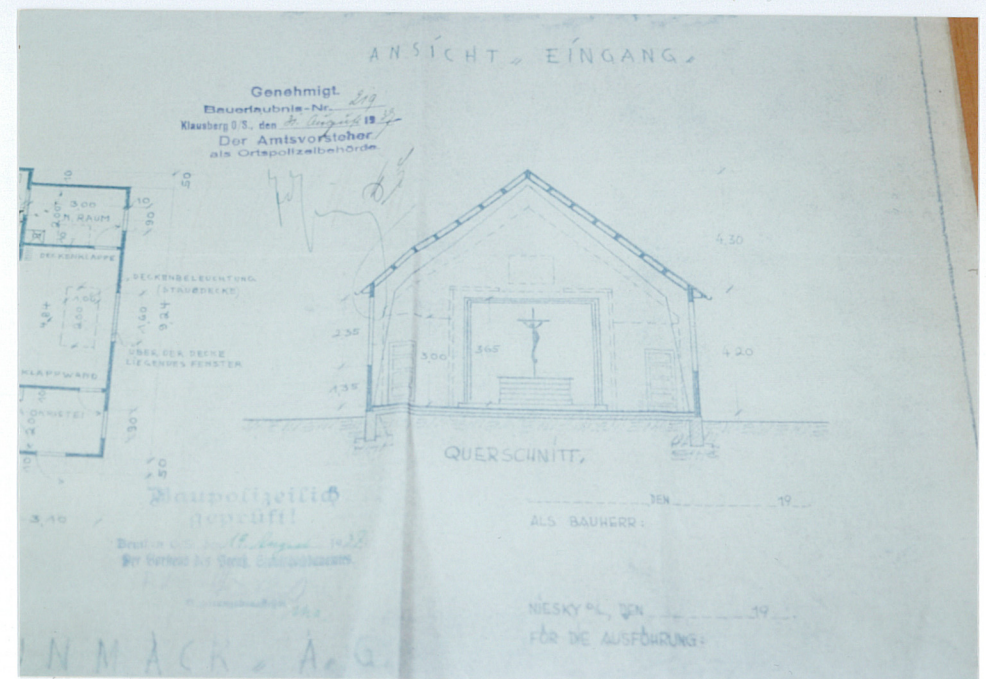 ANSICHT „ EINGANG„
Genehmigt.
Bauerlaubnis-Nr. 219
Klausberg O/S., den August 19
Der Amtsvorsteher
als Ortspolizeibehörde.
10
50
3,00
2,00
RAUM
10
90
DECKENKLAPPE
DECKENBELEUCHTUNG
(STAUBDECKE)
1,60
9,24
ÜBER DER DECKE
LIEGENDES FENSTER
KLAPPWAND
90
50
10
3,10
4,30
2,35
3,00
3,65
4,20
1,35
QUERSCHNITT.
Baupolizeilich
geprüft!
DEN 19
ALS BAUHERR:
NIESKY O/L, DEN 19
FÜR DIE AUSFÜHRUNG:
NMACK„ A.G.